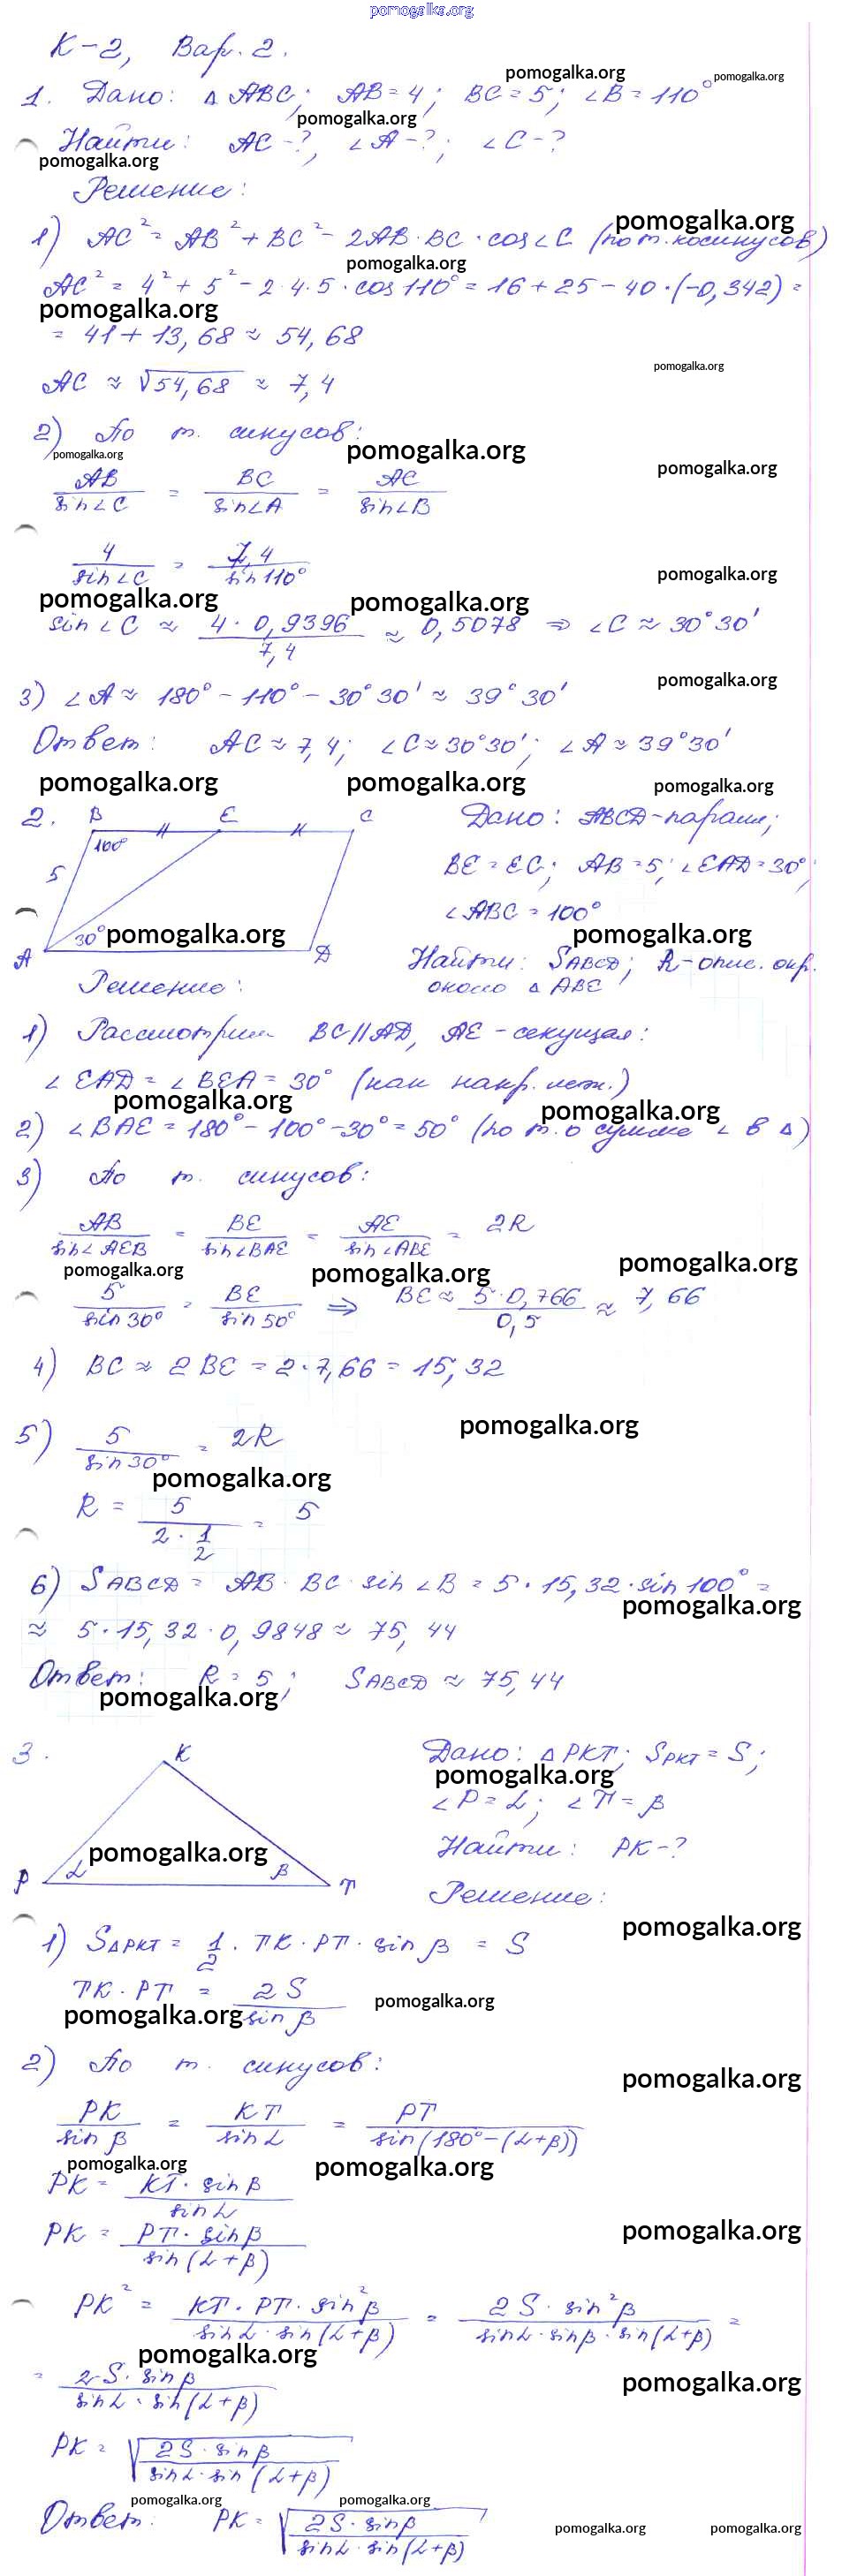 pomogalka.org
К-2, Вар. 2.
pomogalka.org pomogalka.org
1. Дано: △ ABC; AB = 4; BC = 5; ∠B = 110°
pomogalka.org
Найти: AC - ?, ∠A - ?; ∠C - ?
pomogalka.org
Решение:
pomogalka.org
1) AC² = AB² + BC² - 2AB · BC · cos∠C (по т. косинусов)
pomogalka.org
AC² = 4² + 5² - 2·4·5·cos 110° = 16 + 25 - 40·(-0,342) =
pomogalka.org
= 41 + 13,68 ≈ 54,68
pomogalka.org
AC ≈ √54,68 ≈ 7,4
2) По т. синусов:
pomogalka.org pomogalka.org pomogalka.org
AB/sin∠C = BC/sin∠A = AC/sin∠B
4/sin∠C = 7,4/sin 110°
pomogalka.org
pomogalka.org pomogalka.org
sin∠C ≈ 4·0,9396/7,4 ≈ 0,5078 ⇒ ∠C ≈ 30°30'
pomogalka.org
3) ∠A ≈ 180° - 110° - 30°30' ≈ 39°30'
Ответ: AC ≈ 7,4; ∠C ≈ 30°30'; ∠A ≈ 39°30'
pomogalka.org pomogalka.org pomogalka.org
2. B E C Дано: ABCD - парал.;
100°
5 BE = EC; AB = 5; ∠EAD = 30°;
∠ABC = 100°
30° pomogalka.org pomogalka.org
A D Найти: SABCD; R - опис. окр.
около △ ABE
Решение:
1) Рассмотрим BC || AD, AE - секущая:
∠EAD = ∠BEA = 30° (как накр. леж.)
pomogalka.org pomogalka.org
2) ∠BAE = 180° - 100° - 30° = 50° (по т. о сумме ∠ в △)
3) По т. синусов:
AB/sin∠AEB = BE/sin∠BAE = AE/sin∠ABE = 2R
pomogalka.org pomogalka.org pomogalka.org
5/sin 30° = BE/sin 50° ⇒ BE ≈ 5·0,766/0,5 ≈ 7,66
4) BC ≈ 2BE = 2·7,66 = 15,32
pomogalka.org
5) 5/sin 30° = 2R
pomogalka.org
R = 5/(2·1/2) = 5
6) SABCD = AB·BC·sin∠B = 5·15,32·sin 100° =
pomogalka.org
≈ 5·15,32·0,9848 ≈ 75,44
Ответ: R = 5; SABCD ≈ 75,44
pomogalka.org
3. K Дано: △PKT; SPKT = S;
pomogalka.org
∠P = α; ∠T = β
pomogalka.org Найти: PK - ?
P α β T
Решение:
pomogalka.org
1) S△PKT = 1/2 · TK · PT · sin β = S
TK · PT = 2S/sin β
pomogalka.org pomogalka.org
2) По т. синусов:
pomogalka.org
PK/sin β = KT/sin α = PT/sin(180° - (α+β))
pomogalka.org pomogalka.org
PK = KT·sin β/sin α
PK = PT·sin β/sin(α+β)
pomogalka.org
PK² = KT·PT·sin²β/(sin α·sin(α+β)) = 2S·sin²β/(sin α·sin β·sin(α+β)) =
pomogalka.org
= 2S·sin β/(sin α·sin(α+β))
pomogalka.org
PK = √(2S·sin β/(sin α·sin(α+β)))
pomogalka.org pomogalka.org
Ответ: PK = √(2S·sin β/(sin α·sin(α+β)))
pomogalka.org pomogalka.org